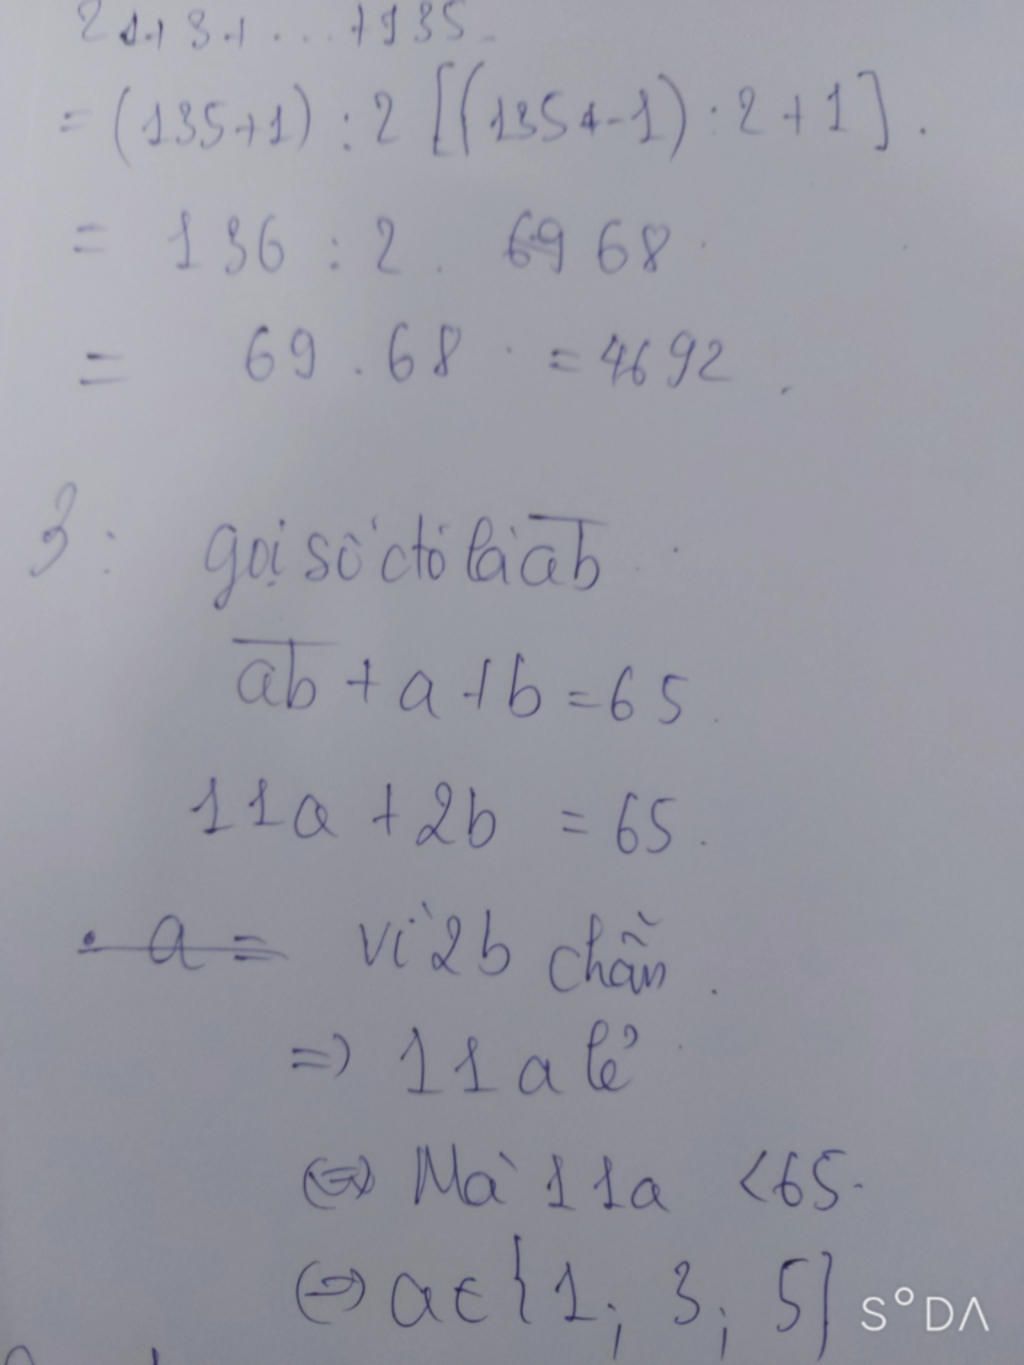 2 1+3+...+135.
=(135+1):2[(135+-1):2+1].
= 136 : 2. 69 68
= 69.68 = 4692.
3: gọi số đó là ab
ab + a + b = 65.
11a + 2b = 65.
a = vì 2b chẵn.
=> 11a lẻ
<=> Mà 11a < 65.
<=> a ∈ {1; 3; 5}
S°DΛ